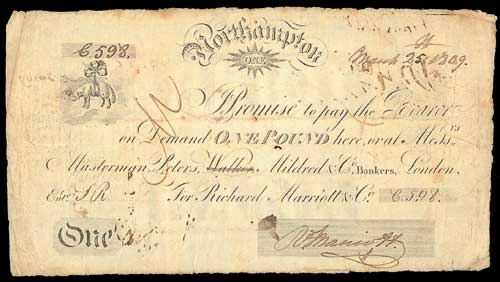 Northampton
C.598.
ONE
March 25, 1809.
I Promise to pay the Bearer
on Demand ONE POUND here, or at Mess.rs
Masterman Peters, Walker Mildred & Co. Bankers, London.
Ent.d J.R. For Richard Marriott & Co. C.598.
One
R Marriott